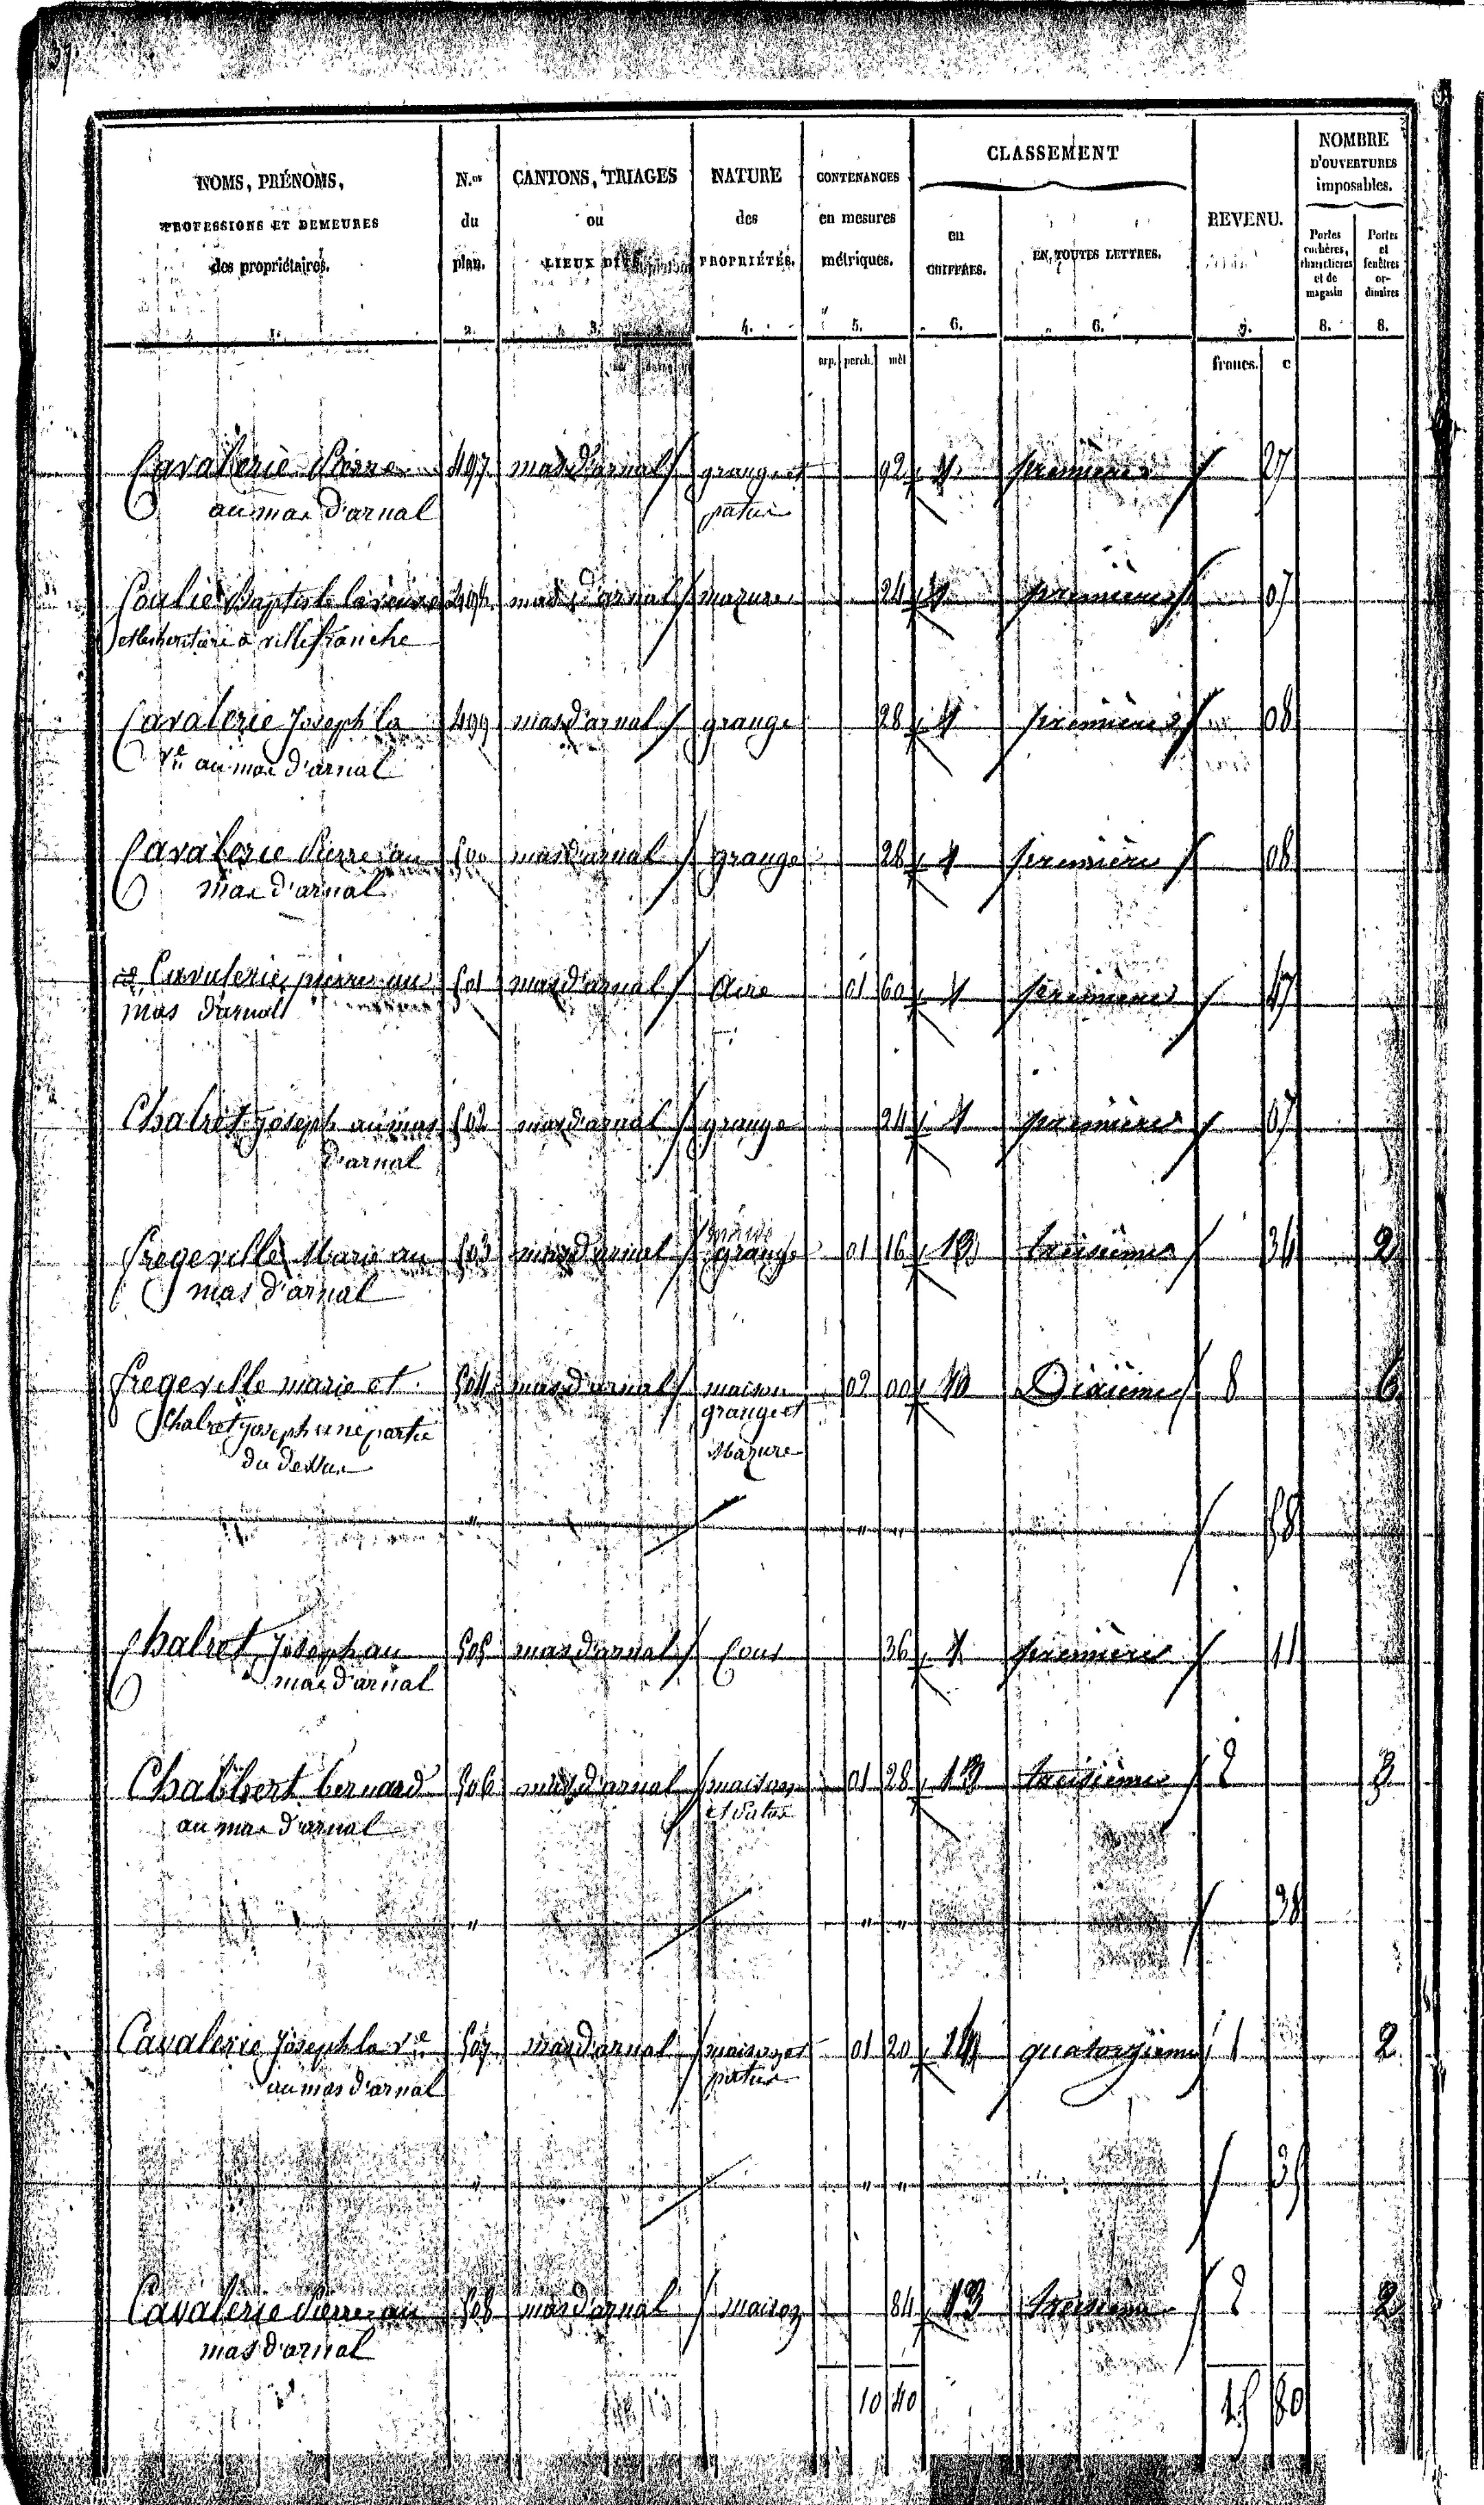 37
NOMS, PRÉNOMS, PROFESSIONS ET DEMEURES des propriétaires. 1.
N.os du plan. 2.
CANTONS, TRIAGES ou LIEUX DITS 3.
NATURE des PROPRIÉTÉS. 4.
CONTENANCES en mesures métriques. 5.
CLASSEMENT
en CHIFFRES. 6.
EN TOUTES LETTRES. 6.
REVENU. 7.
NOMBRE D'OUVERTURES imposables.
Portes cochères, charretières et de magasin 8.
Portes et fenêtres ordinaires 8.
arp. perch. mèt francs. c
Cavalerie Pierre 497 mas d'arnal grange et 92 1 première 27
au mas d'arnal patus
Coulié Baptiste la veuve 498 mas d'arnal mazure 24 1 première 07
et les heritiers à villefranche
Cavalerie Joseph la 499 mas d'arnal grange 28 1 première 08
ve au mas d'arnal
Cavalerie Pierre au 500 mas d'arnal grange 28 1 première 08
mas d'arnal
Cavalerie pierre au 501 mas d'arnal Aire 01 60 1 première 47
mas d'arnal
Chalret joseph au mas 502 mas d'arnal grange 24 1 première 07
d'arnal
fregeville Marie au 503 mas d'arnal grange 01 16 13 treizième 34 2
mas d'arnal
fregeville marie et 504 mas d'arnal maison 02 00 10 Dixième 8 6
Chalret joseph une partie grange et
du dessus Mazure
" " " 58
Chalret Joseph au 505 mas d'arnal Cour 36 1 première 11
mas d'arnal
Chalbert bernard 506 mas d'arnal maison 01 28 13 treizième 2 3
au mas d'arnal et patus
" " " 38
Cavalerie Joseph la ve 507 mas d'arnal maison et 01 20 14 quatorzième 1 2
au mas d'arnal patus
" " " 35
Cavalerie Pierre au 508 mas d'arnal maison 84 13 treizième 2 2
mas d'arnal
10 40 15 80